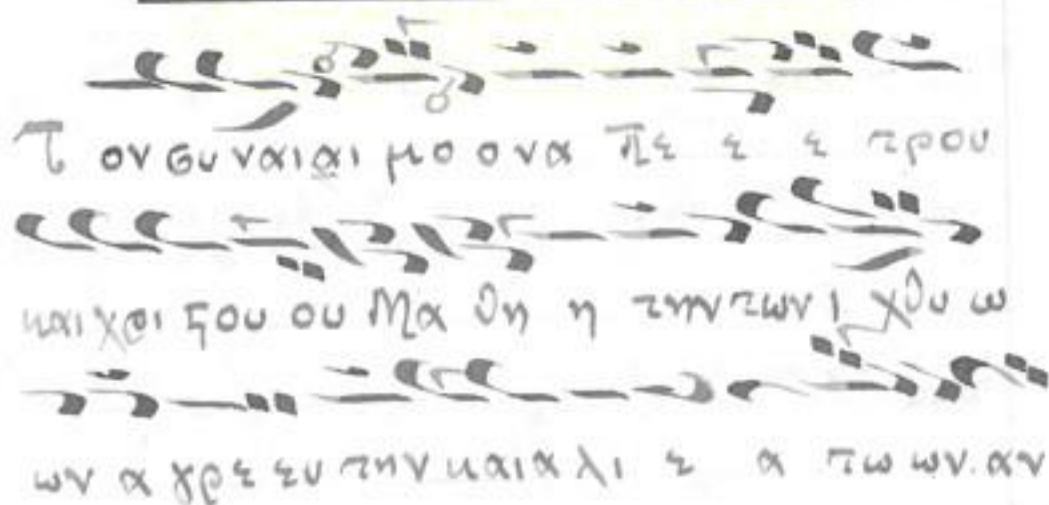 Τ ον συ ναι αι μο ο να Πε ε ε τρου
και χρι ϛου ου Μα θη η την των ι χθυ ω
ων α γρε ευ την και α λι ε α τω ων. αν